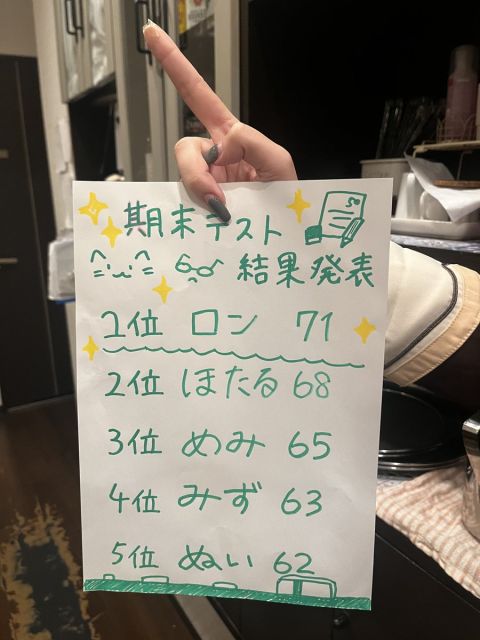 期末テスト
結果発表
1位 ロン 71
2位 ほたる 68
3位 めみ 65
4位 みず 63
5位 ぬい 62